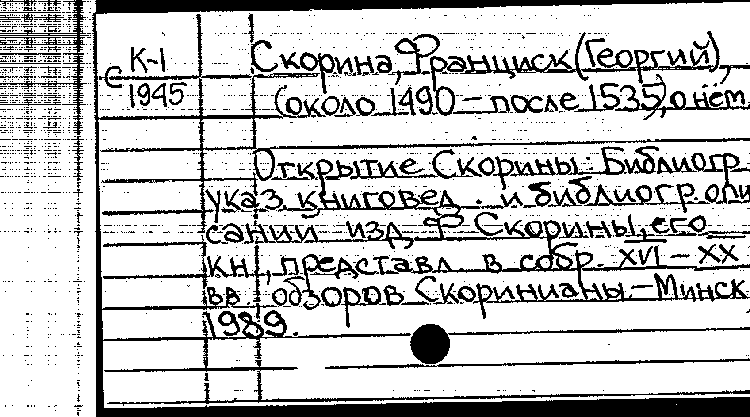 С К-1
1945
Скорина, Франциск (Георгий),
(около 1490 - после 1535), о нем
Открытие Скорины: Библиогр
указ. книговед. и библиогр. опи
саний изд. Ф. Скорины, его
кн., представл. в собр. XVI - XX
вв. обзоров Скоринианы. - Минск,
1989.